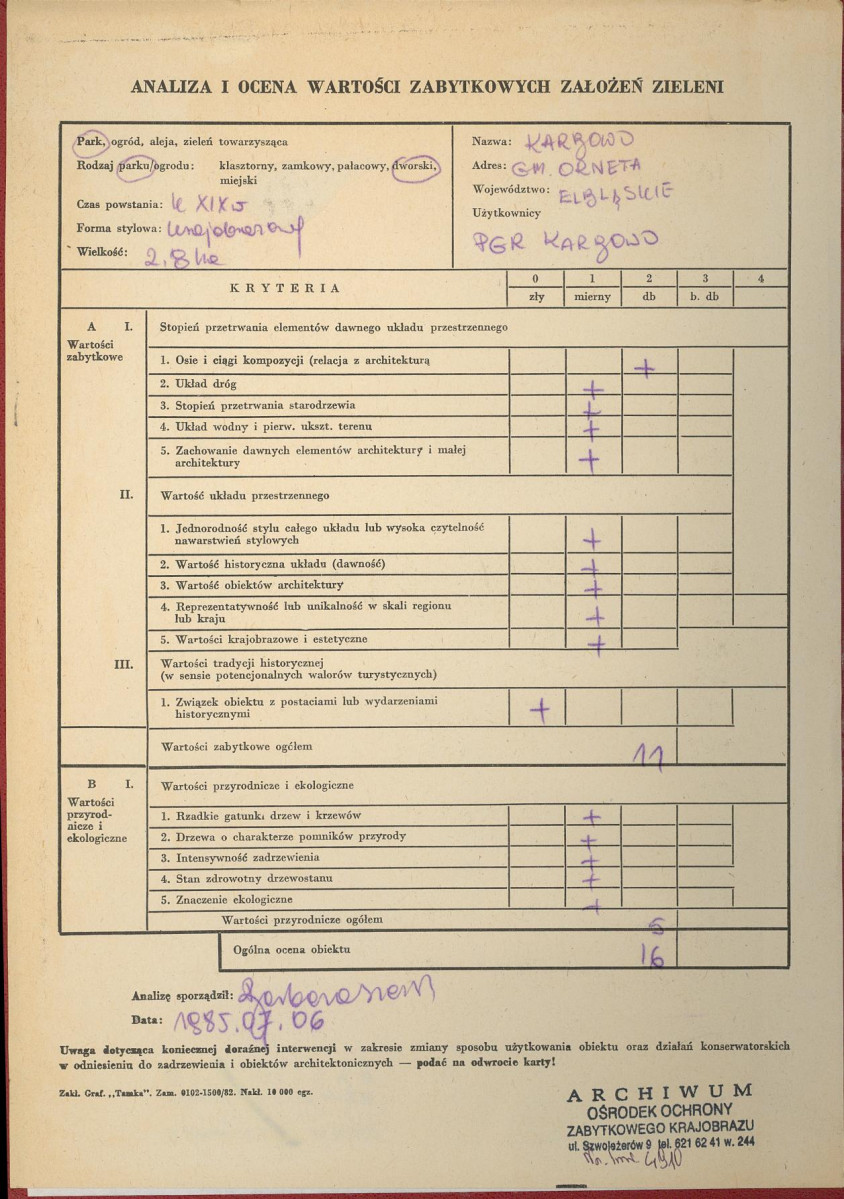 ANALIZA I OCENA WARTOŚCI ZABYTKOWYCH ZAŁOŻEŃ ZIELENI
Park, ogród, aleja, zieleń towarzysząca
Rodzaj parku/ogrodu: klasztorny, zamkowy, pałacowy, dworski,
miejski
Czas powstania: k XIX w
Forma stylowa: krajobrazowy
Wielkość: 2,8 ha
Nazwa: KARBOWO
Adres: GM. ORNETA
Województwo: ELBLĄSKIE
Użytkownicy
PGR KARBOWO
KRYTERIA
0 1 2 3 4
zły mierny db b. db
A I. Stopień przetrwania elementów dawnego układu przestrzennego
Wartości
zabytkowe
1. Osie i ciągi kompozycji (relacja z architekturą +
2. Układ dróg +
3. Stopień przetrwania starodrzewia +
4. Układ wodny i pierw. ukszt. terenu +
5. Zachowanie dawnych elementów architektury i małej
architektury +
II. Wartość układu przestrzennego
1. Jednorodność stylu całego układu lub wysoka czytelność
nawarstwień stylowych +
2. Wartość historyczna układu (dawność) +
3. Wartość obiektów architektury +
4. Reprezentatywność lub unikalność w skali regionu
lub kraju +
5. Wartości krajobrazowe i estetyczne +
III. Wartości tradycji historycznej
(w sensie potencjonalnych walorów turystycznych)
1. Związek obiektu z postaciami lub wydarzeniami
historycznymi +
Wartości zabytkowe ogółem 11
B I. Wartości przyrodnicze i ekologiczne
Wartości
przyrod-
nicze i
ekologiczne
1. Rzadkie gatunki drzew i krzewów +
2. Drzewa o charakterze pomników przyrody +
3. Intensywność zadrzewienia +
4. Stan zdrowotny drzewostanu +
5. Znaczenie ekologiczne +
Wartości przyrodnicze ogółem 5
Ogólna ocena obiektu 16
Analizę sporządził:
Data: 1985.07.06
Uwaga dotycząca koniecznej doraźnej interwencji w zakresie zmiany sposobu użytkowania obiektu oraz działań konserwatorskich
w odniesieniu do zadrzewienia i obiektów architektonicznych — podać na odwrocie karty!
Zakł. Graf. „Tamka". Zam. 0102-1500/82. Nakł. 10 000 egz.
ARCHIWUM
OŚRODEK OCHRONY
ZABYTKOWEGO KRAJOBRAZU
ul. Szwoleżerów 9 tel. 621 62 41 w. 244